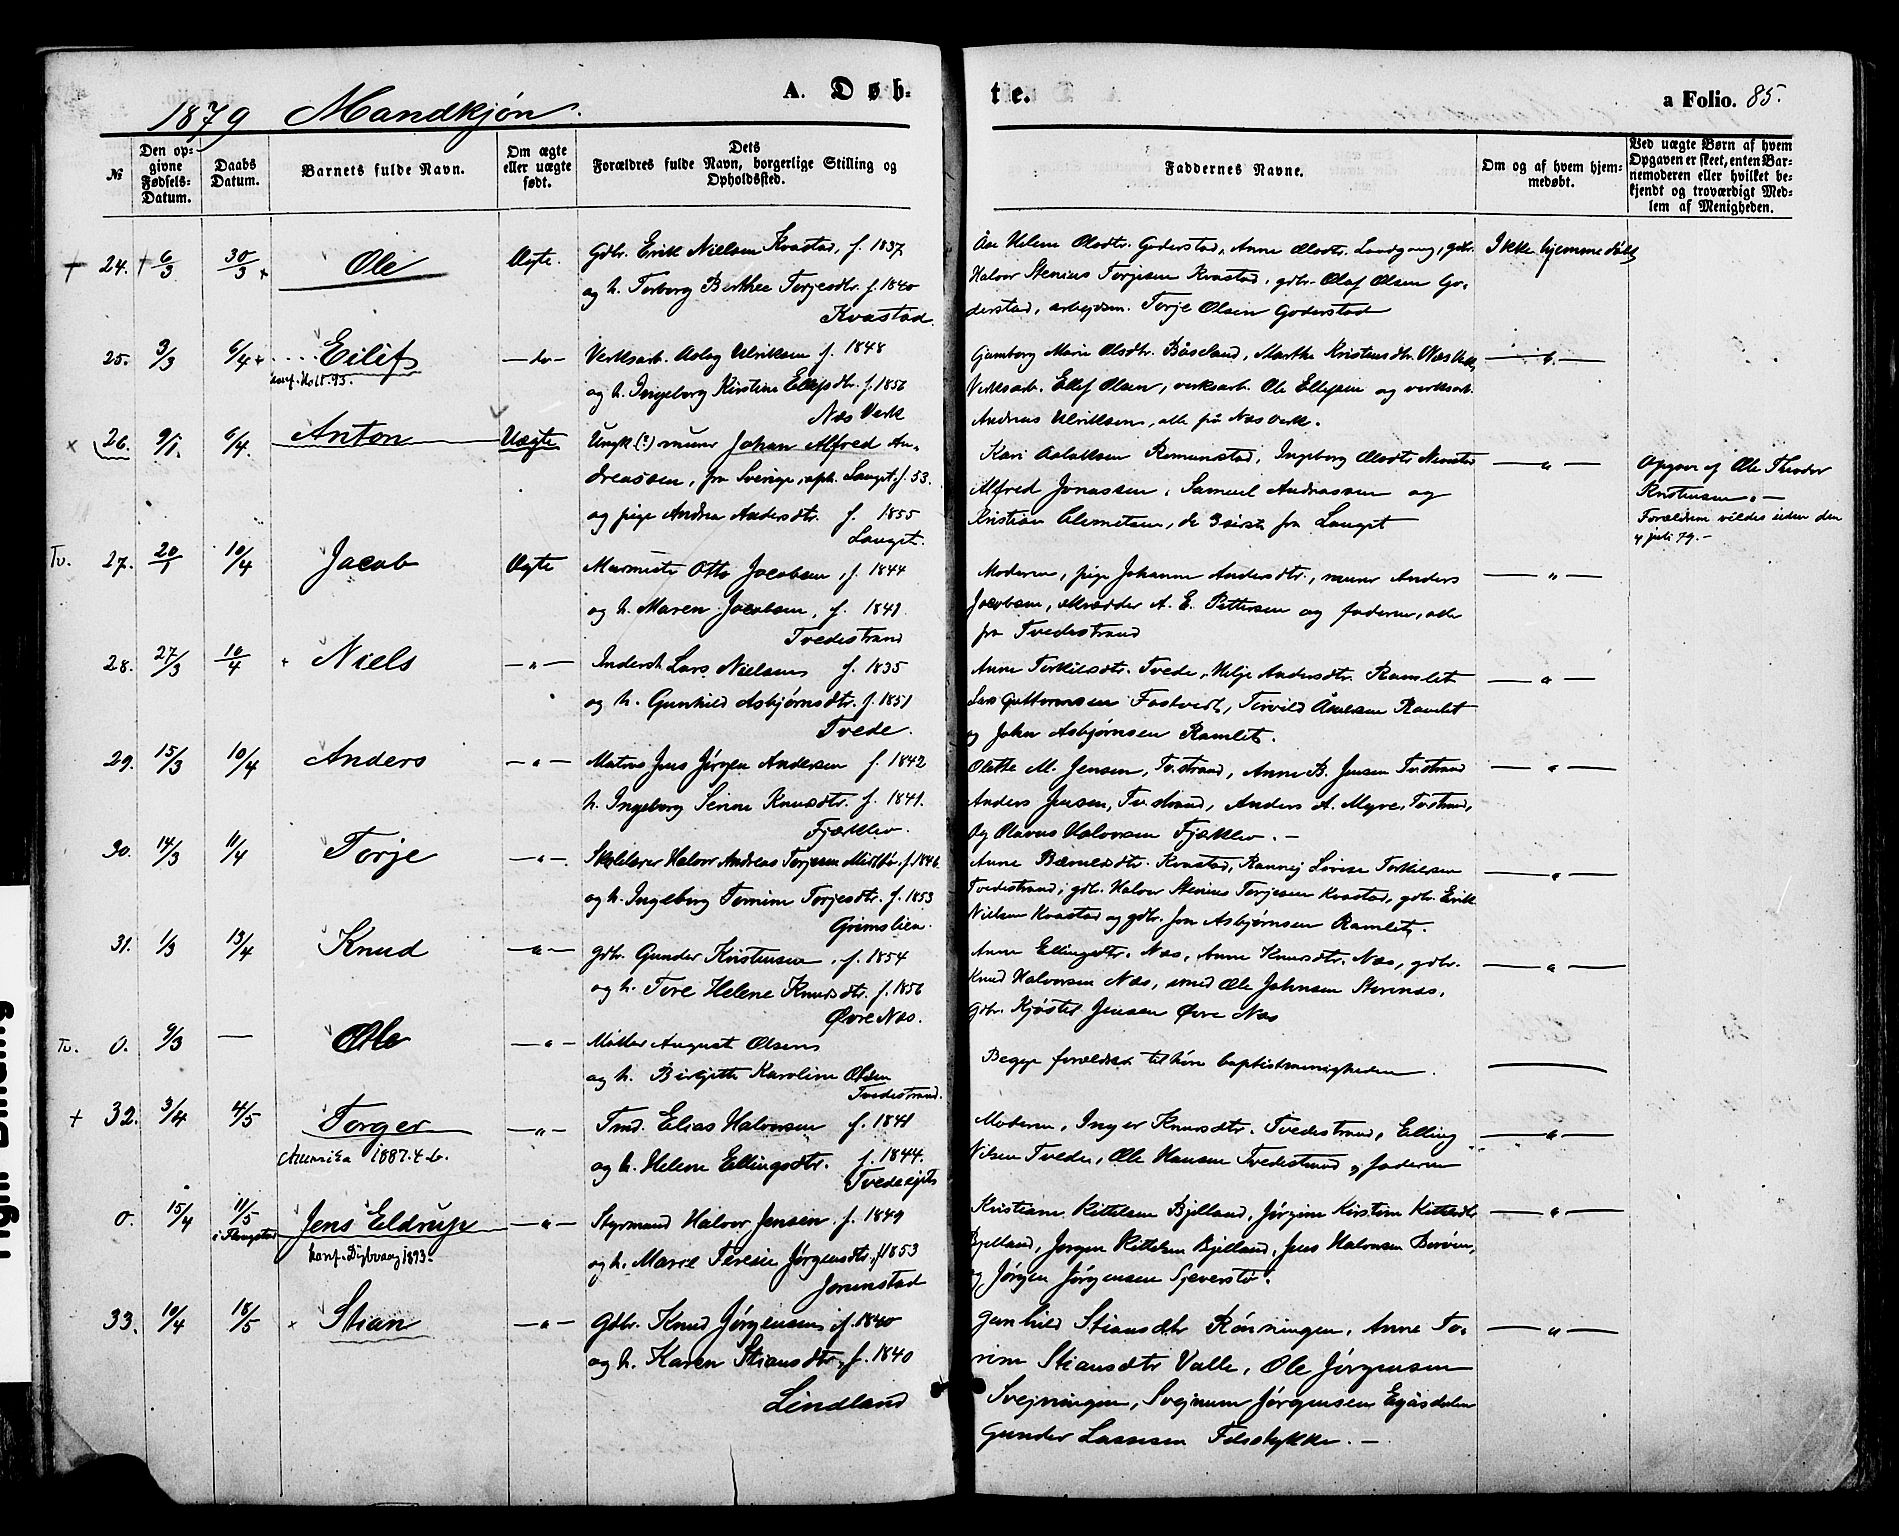 1879 Mandkjøn.
A. Døb-
te.
a Folio. 85.
№
Den op-
givne
Fødsels-
Datum.
Daabs
Datum.
Barnets fulde Navn.
Om ægte
eller uægte
født.
Dets
Forældres fulde Navn, borgerlige Stilling og
Opholdssted.
Faddernes Navne.
Om og af hvem hjem-
medøbt.
Ved uægte Børn af hvem
Opgaven er skeet, enten Bar-
nemoderen eller hvilket be-
kjendt og troværdigt Med-
lem af Menigheden.
24. 6/3 30/3 Ole Ægte. Gdbr. Erik Nielsen Kvastad, f. 1837
og h. Torborg Berthee Torjesdtr. f. 1840
Kvastad.
Åse Helene Olsdtr. Goderstad, Anne Olsdtr. Landgang, gdbr.
Halvor Stenius Torjesen Kvastad, gdbr. Olaf Olsen Go-
derstad, arbejdsm. Torje Olsen Goderstad
Ikke hjemmedøbt
25. 3/3 6/4 Eilif —do— Verksarb. Aslag Ulriksen f. 1848
konf. Holt 93.
og h. Ingeborg Kirstine Ellefsdtr. f. 1856
Næs Verk
Gunborg Marie Olsdtr. Båseland, Marthe Kristensdtr. Næs Verk,
Verksarb. Ellef Olsen, verksarb. Ole Ellefsen og verksarb.
Andreas Ulriksen, alle på Næs Verk.
26. 9/1. 6/4. Anton Uægte Ungk. (?) murer Johan Alfred An-
dreassen, fra Sverige, oph. Langet, f. 53.
og pige Andrea Andersdtr. f. 1855
Langet.
Kari Aslaksen Romundstad, Ingeborg Olsdtr.
Alfred Jonassen, Samuel Andreassen og
Kristian Clemetsen, de 3 sidste fra Langet
—"—
Opgav af Ole Theodor
Kristensen. —
Forældrene viedes siden den
4 juli 79. —
Tv. 27. 20/1 10/4 Jacob Ægte Murmester Otto Jacobsen, f. 1844
og h. Maren Jacobsen, f. 1841.
Tvedestrand
Moderen, pige Johanne Andersdtr., murer Anders
Jacobsen, A. E. Pettersen og faderen, alle
fra Tvedestrand
—"—
28. 27/3 10/4 Niels —"— Inderst Lars Nielsen f. 1835
og h. Gunhild Asbjørnsdtr. f. 1851
Tvede.
Anne Terkilsdtr. Tvede, Helje Andersdtr. Ramlet
Lars Guttormsen Fostvedt, Torvild Ramlet
og John Asbjørnsen Ramlet.
—"—
29. 15/3 10/4 Anders —"— Matros Jens Jørgen Andersen f. 1842
h. Ingeborg Serine Knudsdtr. f. 1841.
Fjæklev.
Olette M. Jensen, Tv.strand, Anne B. Jensen Tv.strand
Anders Jensen, Tv.strand, Anders A. Myre, Tv.strand,
og Olavus Halvorsen Fjæklev. —
—"—
30. 14/3 11/4 Torje —"— Skolelærer Halvor Andreas Torjesen Midtbø, f. 1846
og h. Ingeborg Tomine Torjesdtr. f. 1853
Grimslien.
Anne Kvastad, Rannej Lovise Terkilsen
Tvedestrand; gdbr. Halvor Stenius Torjesen Kvastad, gdbr. Erik
Nielsen Kvastad og gdbr. Jon Asbjørnsen Ramlet.
—"—
31. 1/3 13/4 Knud —"— gdbr. Gunder Kristensen, f. 1854
og h. Tore Helene Knudsdtr. f. 1856
Øvre Næs.
Anne Ellingsdtr. Næs, Anne Knudsdtr. Næs, gdbr.
Knud Halvorsen Næs, smed Ole Johnsen Storenæs,
gdbr. Kjøstel Jensen Øvre Næs
—"—
Tv. 0. 9/3 — Ole —"— Møller August Olsen
og h. Birgitte Karoline Olsen
Tvedestrand.
Begge forældre tilhøre baptistmenigheden.
32. 3/4 4/5 Torger —"— Tmd. Elias Halvorsen f. 1841
Amerika 1887.
og h. Helene Ellingsdtr. f. 1844.
Moderen, Inger Knudsdtr. Tvedestrand, Elling
Nilsen Tvede, Ole Hansen Tvedestrand og faderen
—"—
0. 15/4 11/5 Jens Eldrup —"— Styrmand Halvor Jensen f. 1849
i Flangstad
konf. Dybvaag 1893.
og h. Maree Teresie Jørgensdtr. f 1853
Jorunstad
Kristiane Kittelsen Bjelland, Jørgine Kirstine Kittelsdtr.
Bjelland, Jørgen Kittelsen Bjelland, Jens Halvorsen Borøen,
og Jørgen Jørgensen Sjeverstø.
—"—
33. 10/4 18/5 Stian —"— Gdbr. Knud Jørgensen f. 1840
og h. Karen Stiansdtr. f. 1840
Lindland
Gunhild Stiansdtr Rønningen, Anne To-
rine Stiansdtr Valle, Ole Jørgensen
Svejningen, Svejnum Jørgensen Egåsdalen
Gunder Lassesen Felestykke. —
—"—